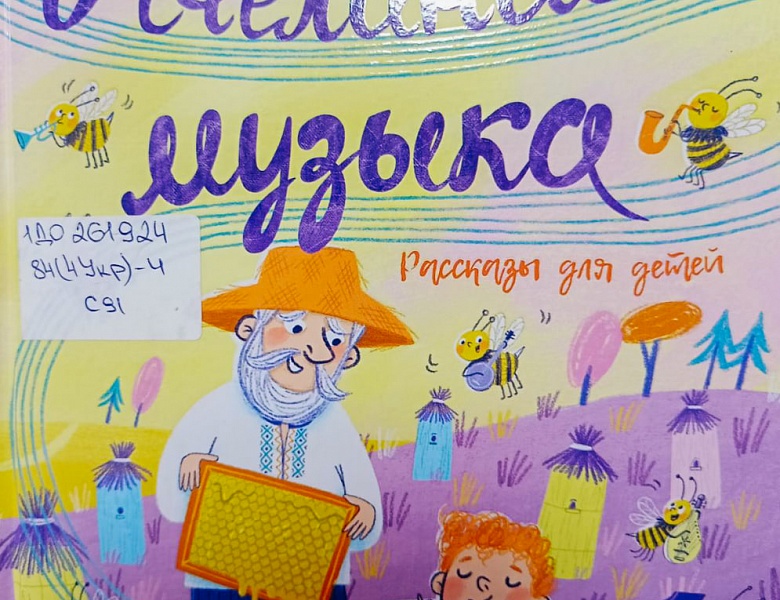 Пчелиная
музыка
1ДО 261924
84(4Укр)-4
С91
Рассказы для детей